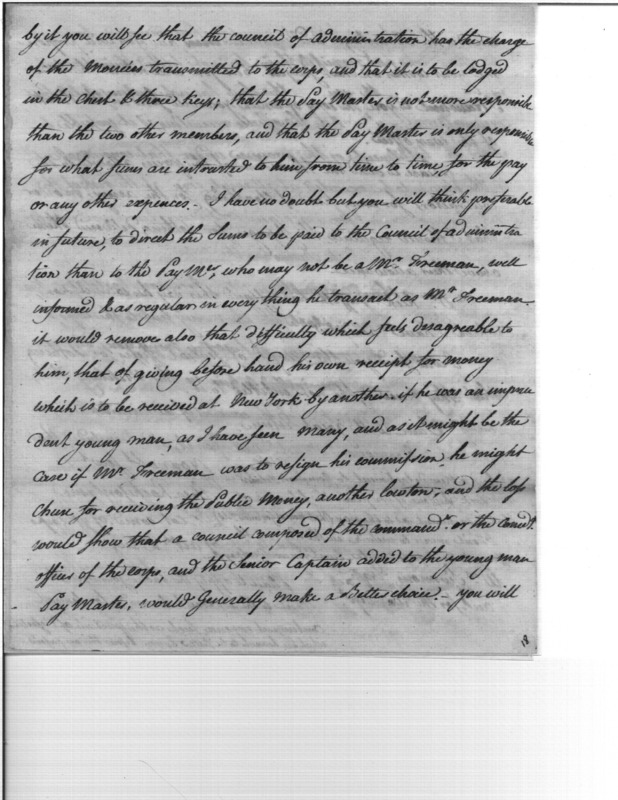 by it you will see that the council of administration has the charge
of the Monies transmitted to the corps, and that it is to be lodged
in the Chest & three Keys; that the Pay Master is not more responsible
than the two other members, and that the Pay Master is only responsible
for what sums are intrusted to him from time to time for the pay
or any other expences. - I have no doubt but you will think preferable
in future, to direct the Sums to be paid to the Council of administra
tion than to the Pay Mr, who may not be a Mr. Freeman, well
informed & as regular in every thing he transact as Mr Freeman -
it would remove also that difficulty which feels disagreable to
him, that of giving before hand his own receipt for money
which is to be received at New York by another. if he was an impru
dent young man, as I have seen many, and as it might be the
case if Mr. Freeman was to resign his commission, he might
chuse for receiving the Public Money, another lowton, and the loss
would show that a council composed of the command.r or the comd.t
officer of the corps, and the Senior Captain added to the young man
Pay Master, would Generally make a Better choice. - you will
18